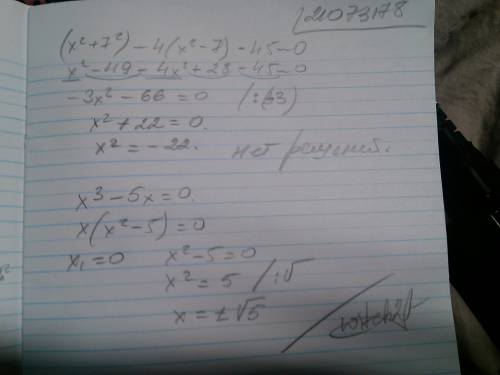 21073178
(x²+7²)-4(x²-7)-45=0
x²-49-4x²+28-45=0
-3x²-66=0 /:(-3)
x²+22=0.
x²=-22. нет решений.
x³-5x=0
x(x²-5)=0
x₁=0 x²-5=0
x²=5 /:√
x=±√5